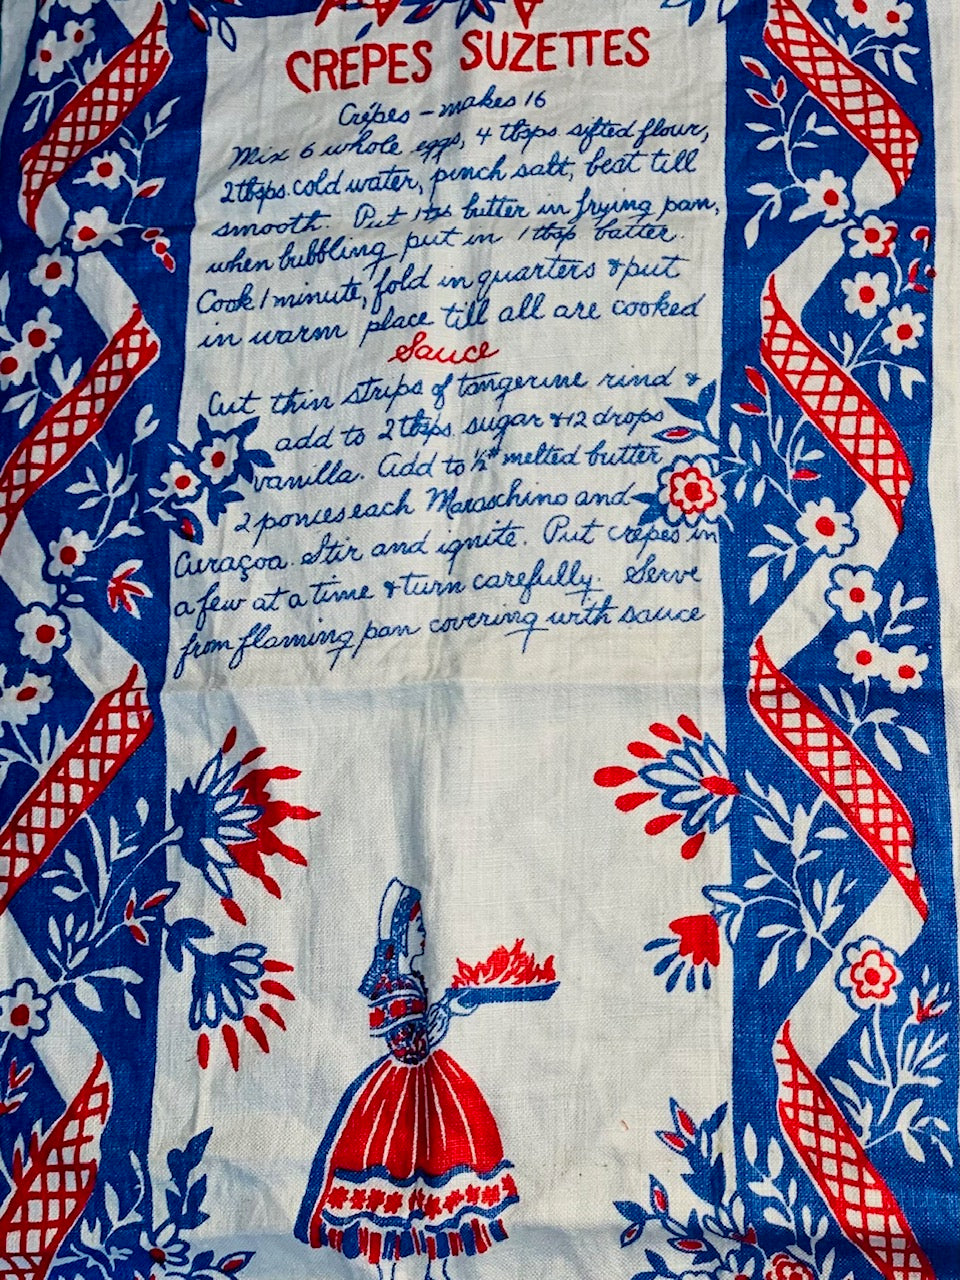 CRÊPES SUZETTES
Crêpes - makes 16
Mix 6 whole eggs, 4 tbsps sifted flour,
2 tbsps. cold water, pinch salt, beat till
smooth. Put 1 tbs butter in frying pan,
when bubbling put in 1 tbsp batter.
Cook 1 minute, fold in quarters & put
in warm place till all are cooked
Sauce
Cut thin strips of tangerine rind &
add to 2 tbsps. sugar & 12 drops
vanilla. Add to ½# melted butter
2 ponies each Maraschino and
Curaçoa. Stir and ignite. Put crêpes in
a few at a time & turn carefully. Serve
from flaming pan covering with sauce